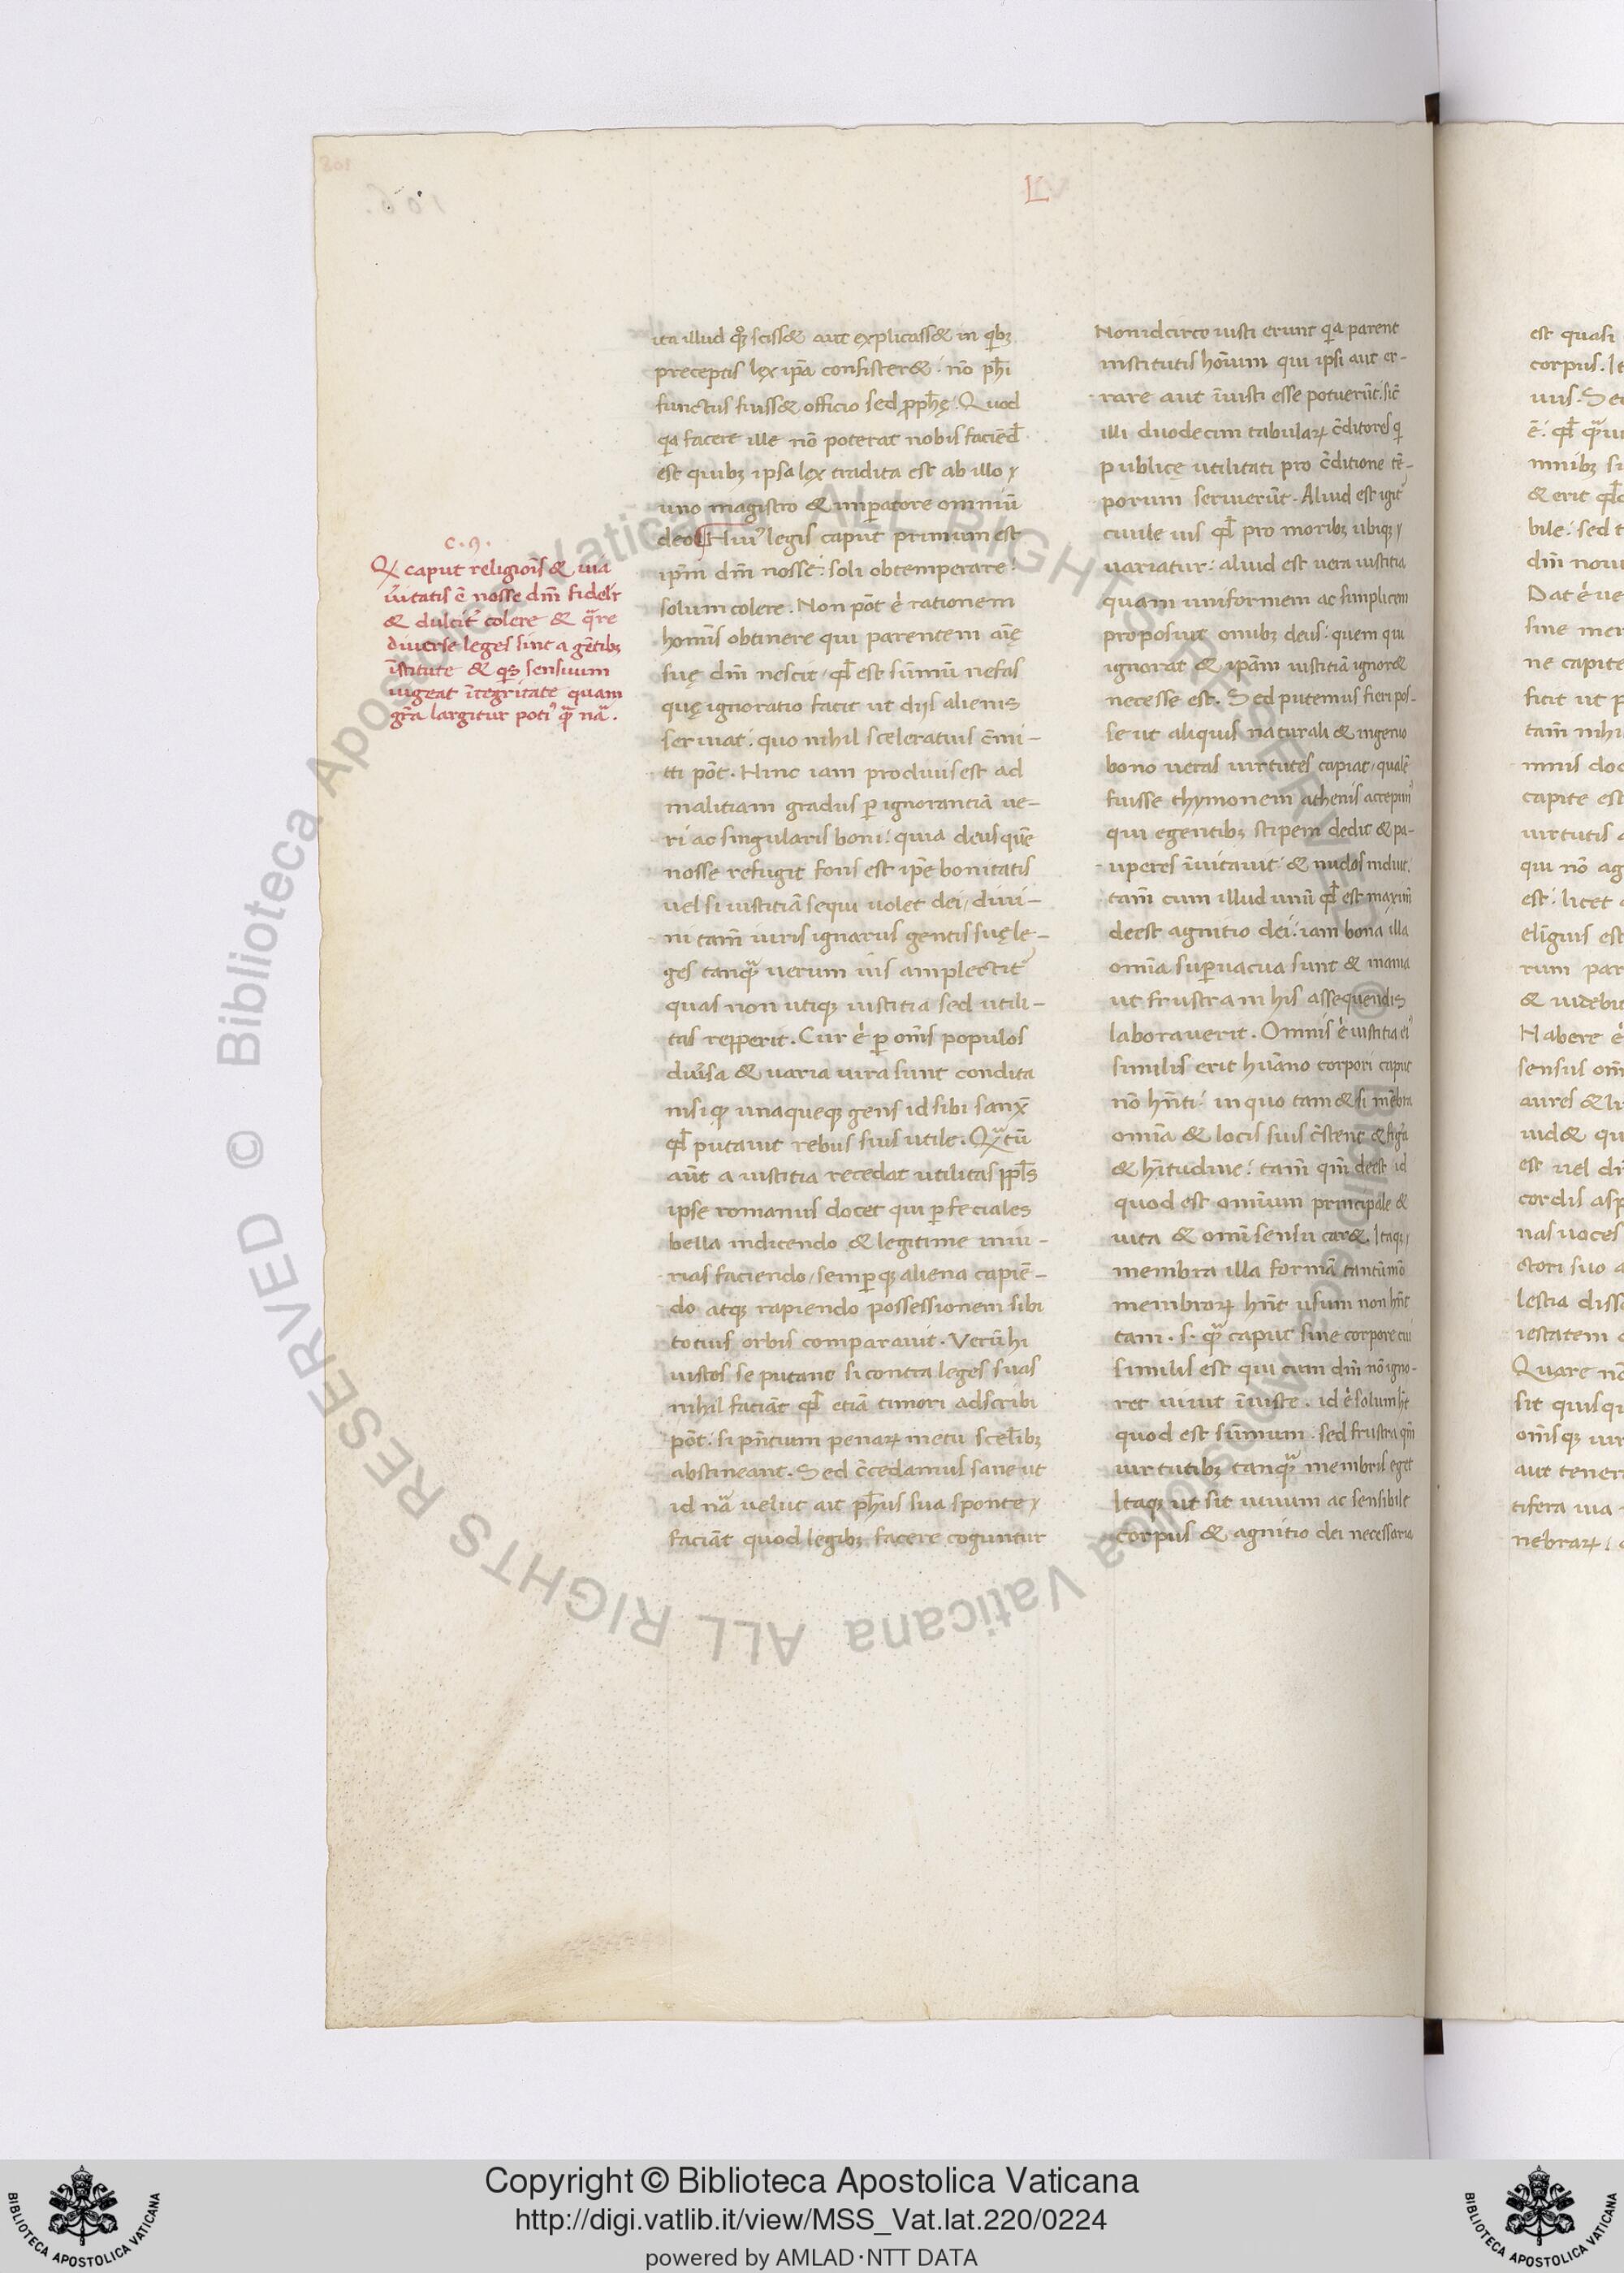 L
c. 9.
Q caput religiois & uia
uitatis ē nosse dm̄ fideľr
& dulcit̾ colere & q̄re
diuerse leges sint a gētibꝫ
īstitute & qͥs sensuum
uigeat ītegritate quam
gr̄a largitur poti꒛ q̄ nā.
ita illud qꝫ scisset aut explicasset in qͥbꝫ
preceptis lex ip̄a consisteret: nō ph̄i
functus fuisset officio sed ꝓphę. Quod
qa facere ille nō poterat nobis faciēd
est quibꝫ ipsa lex tradita est ab illo
uno magistro & imꝑatore omniū
deo Hui꒛ legis caput primum est
ip̄m dm̄ nosse: soli obtemperare:
solum colere. Non pōt ē rationem
hominis obtinere qui parentem aīę
suę dm̄ nescit / qd̄ est sūmū nefas
quę ignoratio facit ut diis alienis
seruiat: quo nihil sceleratius c̄mi-
tti pōt. Hinc iam procliuis est ad
malitiam gradus ꝑ ignorantiā ue-
ri ac singularis boni: quia deus quē
nosse refugit fons est ip̄e bonitatis
uel si iustitiā sequi uolet dei / diui-
ni tam̄ iuris ignarus gentis suę le-
ges tanq̄ uerum ius amplectit̾
quas non utiqꝫ iustitia sed utili-
tas repꝑerit. Cur ē ꝑ om̄s populos
diu̾sa & uaria iura sunt condita
nisi qꝫ unaqueqꝫ gens id sibi sanx̄
qd̄ putauit rebus suis utile. Q̄tū
aūt a iustitia recedat utilitas ppls̄
ipse romanus docet qui ꝑ feciales
bella indicendo & legitime iniu-
rias faciendo / semꝑqꝫ aliena capiē-
do atqꝫ rapiendo possessionem sibi
totius orbis comparauit. Verū hi
iustos se putant si contra leges suas
nihil faciāt qd̄ etiā timori adscribi
pōt: si pn̄tium penaꝝ metu scelibꝫ
abstineant. Sed c̄cedamus sane ut
id nā uelut ait ph̄us sua sponte
faciāt quod legibꝫ facere coguntur
Non idcirco iusti erunt qa parent
institutis hoīum qui ipsi aut er-
rare aut īiusti esse potuerūt: sic̄
illi duodecim tabulaꝝ c̄ditores q
publicę utilitati pro c̄ditione tē-
porum seruierūt. Aliud est igit̾
ciuile ius qd̄ pro moribꝫ ubiqꝫ
uariatur: aliud est uera iustitia
quam uniformem ac simplicem
proposuit om̄ibꝫ deus: quem qui
ignorat & ip̄am iustitiā ignoret
necesse est. Sed putemus fieri pos-
se ut aliquis naturali & ingenio
bono ueras uirtutes capiat / qualē
fuisse thymonem athenis accepim꒛
qui egentibꝫ stipem dedit & pa-
uperes īuitauit: & nudos induit.
tam̄ cum illud unū qd̄ est maximū
deest agnitio dei: iam bona illa
omīa suꝑuacua sunt & inania
ut frustra in his assequendis
laborauerit. Omnis ē iustitia ei꒛
similis erit hūano corpori caput
nō hn̄ti: in quo tam & si mēbra
omīa & locis suis c̄stent & figᵃ
& hītudine: tam̄ qm̄ deest id
quod est omīum principale &
uita & omī sensu caret. Itaqꝫ
membra illa formā tantūmō
membroꝝ hn̄t usum non hn̄t
tam. s. q̄ caput sine corpore cui
similis est qui cum dm̄ nō igno-
ret uiuit īiuste. id ē solum ht̄
quod est sūmum: sed frustra qm̄
uirtutibꝫ tanq̄ membris eget
Itaqꝫ ut sit uiuum ac sensibile
corpus & agnitio dei necessaria
est quasi
corpus. It
Dat ē ue
sine mem
ne capite
ficit ut p
tam̄ nihi
capite est
uirtutis
qui nō ag
est: licet
rum par
Habere ē
sensus om̄
aures & li
est uel di
cordis asp
nas uoces
ctori suo a
Quare nō
sit quisqu
aut tener
tifera uia
nebraꝝ
© Biblioteca Apostolica Vaticana ALL RIGHTS RESERVED © Biblioteca Apostolica Vaticana ALL RIGHTS RESERVED
BIBLIOTECA APOSTOLICA VATICANA
Copyright © Biblioteca Apostolica Vaticana
http://digi.vatlib.it/view/MSS_Vat.lat.220/0224
powered by AMLAD·NTT DATA
BIBLIOTECA APOSTOLICA VATICANA